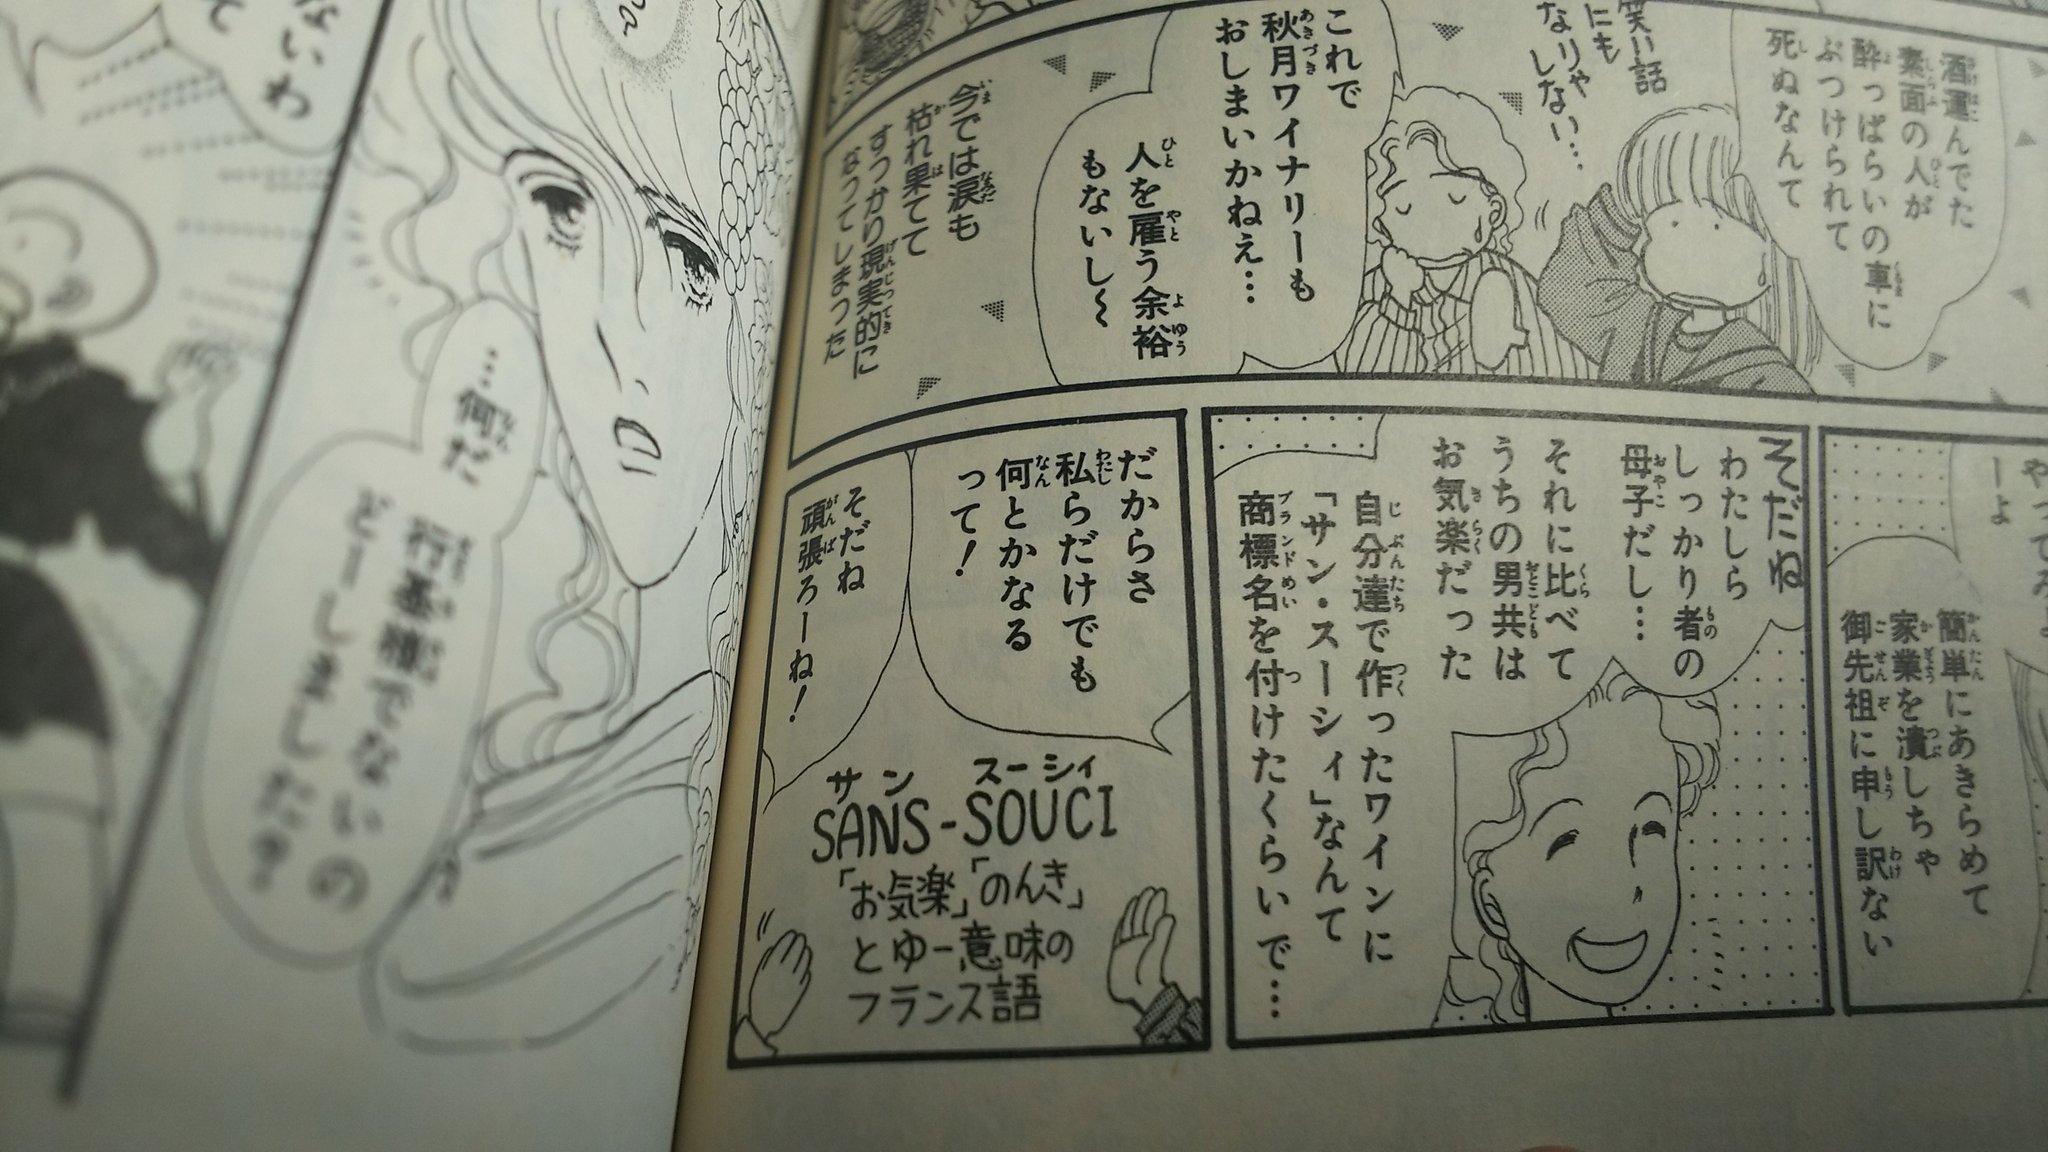 酒運んでた
素面の人が
酔っぱらいの車に
ぶつけられて
死ぬなんて
笑い話
にも
なりゃ
しない…
これで
秋月ワイナリーも
おしまいかねえ…
人を雇う余裕
もないし～
今では涙も
枯れ果てて
すっかり現実的に
なってしまった
簡単にあきらめて
家業を潰しちゃ
御先祖に申し訳ない
そだね
わたしら
しっかり者の
母子だし…
それに比べて
うちの男共は
お気楽だった
自分達で作ったワインに
「サン・スーシィ」なんて
商標名を付けたくらいで…
だからさ
私らだけでも
何とかなる
って！
そだね
頑張ろーね！
サン スーシィ
SANS-SOUCI
「お気楽」「のんき」
とゆー意味の
フランス語
ないわ
て
…何だ
でないの
どーしました？